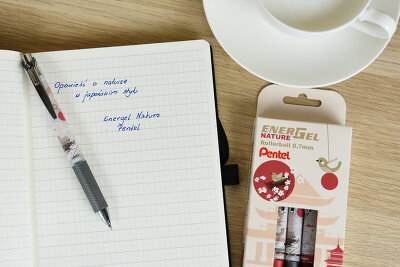 Opowieść o naturze
w japońskim stylu
Energel Nature
Pentel
ENERGEL
NATURE
Rollerball 0.7mm
Pentel